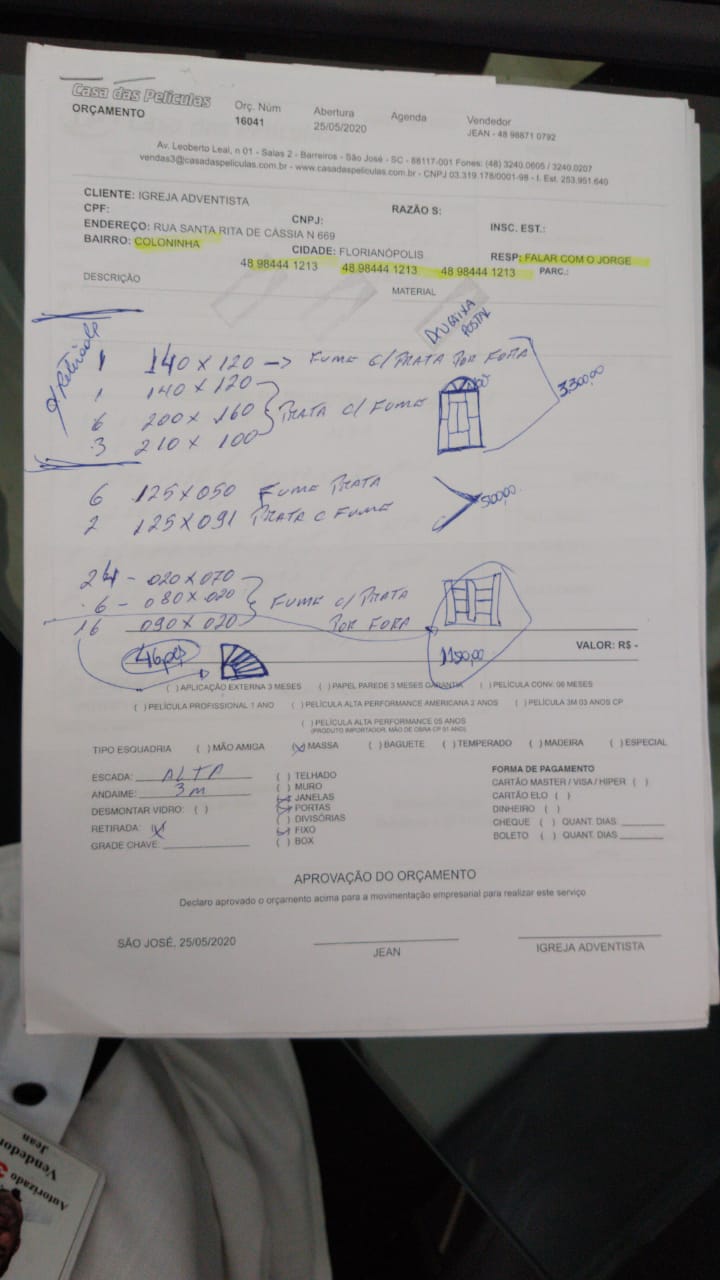 Casa das Películas
ORÇAMENTO
Orç. Núm
16041
Abertura
25/05/2020
Agenda
Vendedor
JEAN - 48 98871 0792
Av. Leoberto Leal, n 01 - Salas 2 - Barreiros - São José - SC - 88117-001 Fones: (48) 3240.0605 / 3240.0207
vendas3@casadaspeliculas.com.br - www.casadaspeliculas.com.br - CNPJ 03.319.178/0001-98 - I. Est. 253.951.640
CLIENTE: IGREJA ADVENTISTA
RAZÃO S:
CPF:
CNPJ:
INSC. EST.:
ENDEREÇO: RUA SANTA RITA DE CÁSSIA N 669
BAIRRO: COLONINHA
CIDADE: FLORIANÓPOLIS
RESP: FALAR COM O JORGE
48 98444 1213 48 98444 1213 48 98444 1213
PARC.:
DESCRIÇÃO
MATERIAL
POSTAL
c/ Retirada
1 140 X 120 -> FUME C/ PRATA POR FORA
1 140 X 120
6 200 X 160 PRATA C/ FUME
3 210 X 100
3.300,00
6 125 X 050 FUME PRATA
2 125 X 091 PRATA C FUME
500,00
24 - 020 X 070
6 - 080 X 020 FUME C/ PRATA
16 090 X 020 POR FORA
1150,00
46 pçs
VALOR: R$ -
( ) APLICAÇÃO EXTERNA 3 MESES ( ) PAPEL PAREDE 3 MESES GARANTIA ( ) PELÍCULA CONV. 06 MESES
( ) PELÍCULA PROFISSIONAL 1 ANO ( ) PELÍCULA ALTA PERFORMANCE AMERICANA 2 ANOS ( ) PELÍCULA 3M 03 ANOS CP
( ) PELÍCULA ALTA PERFORMANCE 05 ANOS
(PRODUTO IMPORTADOR, MÃO DE OBRA CP 01 ANO)
TIPO ESQUADRIA ( ) MÃO AMIGA (X) MASSA ( ) BAGUETE ( ) TEMPERADO ( ) MADEIRA ( ) ESPECIAL
ESCADA: ALTA
ANDAIME: 3m
DESMONTAR VIDRO: ( )
RETIRADA: (X)
GRADE CHAVE:
( ) TELHADO
( ) MURO
(X) JANELAS
(X) PORTAS
( ) DIVISÓRIAS
(X) FIXO
( ) BOX
FORMA DE PAGAMENTO
CARTÃO MASTER / VISA / HIPER ( )
CARTÃO ELO ( )
DINHEIRO ( )
CHEQUE ( ) QUANT. DIAS
BOLETO ( ) QUANT. DIAS
APROVAÇÃO DO ORÇAMENTO
Declaro aprovado o orçamento acima para a movimentação empresarial para realizar este serviço
SÃO JOSÉ, 25/05/2020
JEAN
IGREJA ADVENTISTA
Autorizado 3
Vendedor
Jean